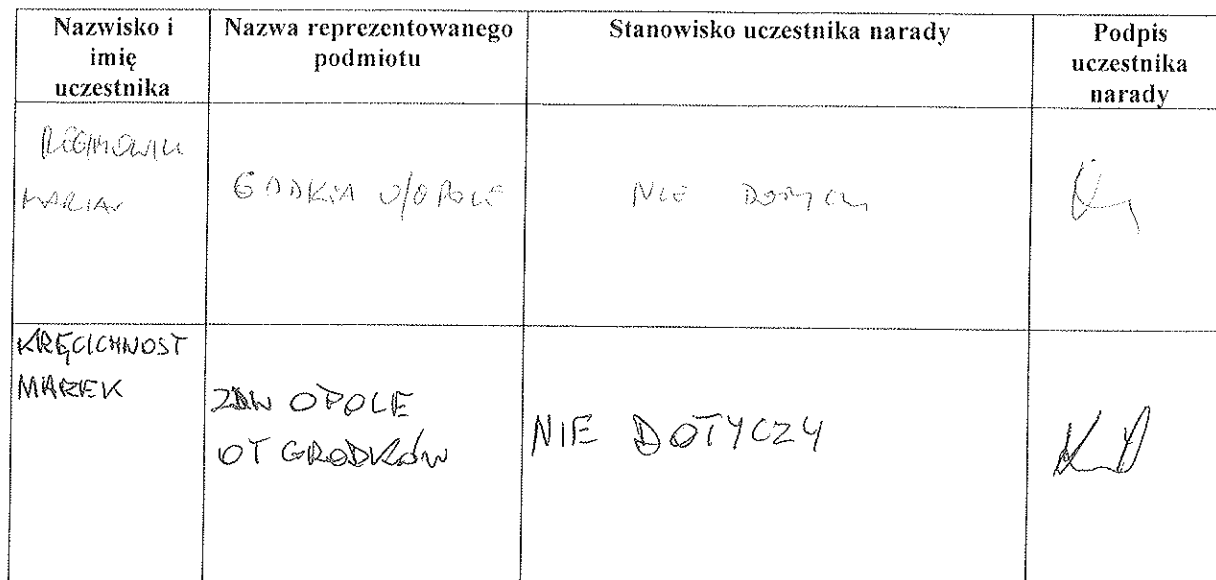 Nazwisko i
imię
uczestnika
Nazwa reprezentowanego
podmiotu
Stanowisko uczestnika narady
Podpis
uczestnika
narady
MARIAN
GDDKIA O/OPOLE
NIE DOTYCZY
KRĘCICHNOST
MAREK
OPOLE
OT GRODKÓW
NIE DOTYCZY